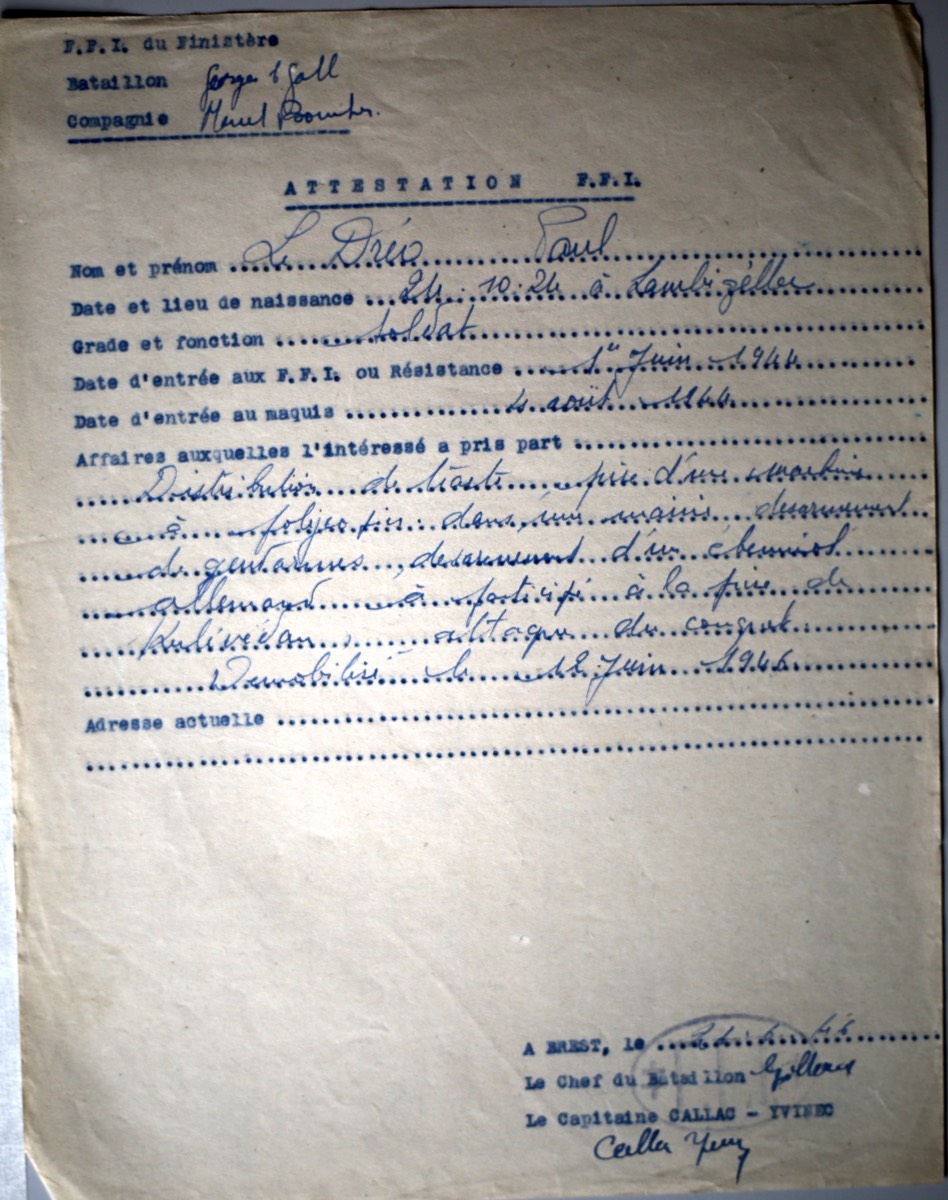 F.F.I. du Finistère
Bataillon Georges le Gall
Compagnie Marcel
ATTESTATION F.F.I.
Nom et prénom Le Dréo Paul
Date et lieu de naissance 24.10.24 à Lambézellec
Grade et fonction soldat
Date d'entrée aux F.F.I. ou Résistance 1er Juin 1944
Date d'entrée au maquis 4 août 1944
Affaires auxquelles l'intéressé a pris part
Distribution de tracts prise d'une machine
à polycopier dans une mairie desarmement
de gendarmes, desarmement d'un cheminot
allemand à participé à la prise de
attaque du conquet
Demobilisé le 12 Juin 1945
Adresse actuelle
A BREST, le
Le Chef du Bataillon
Le Capitaine CALLAC - YVINEC